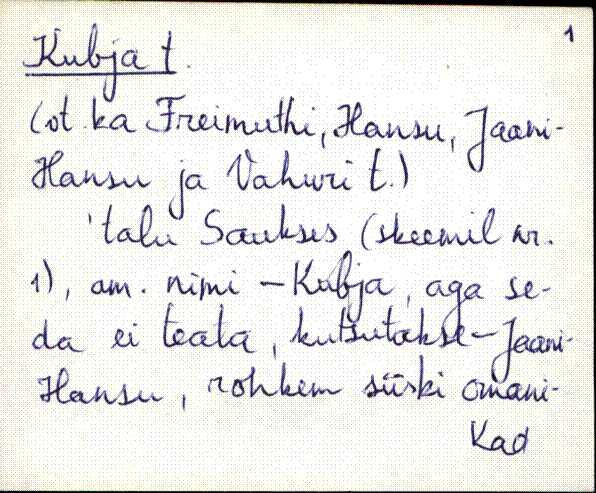 1
Kubja t.
(vt. ka Freimuthi, Hansu, Jaani-
Hansu ja Vahuri t.)
'talu Saukses (skeemil nr.
1), am. nimi – Kubja, aga se-
da ei teata, kutsutakse – Jaani-
Hansu, rohkem siiski omani-
kad